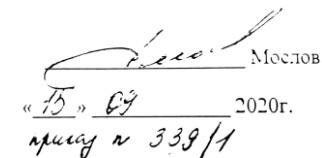 Мослов
« 15 » 09 2020г.
приказ n 339/1